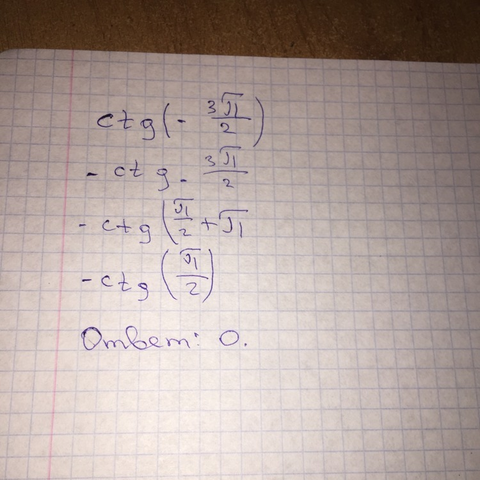 ctg(- 3π/2)
- ctg - 3π/2
- ctg(π/2 + π
- ctg(π/2)
Ответ: 0.